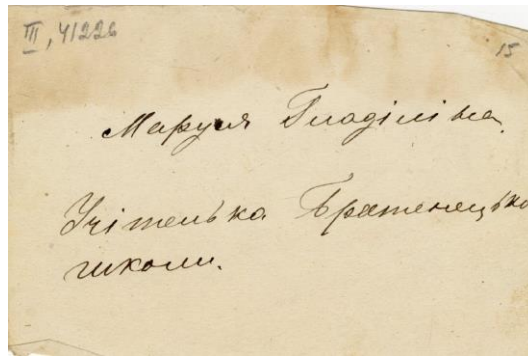 III, 41226
15
Маруся Гладилівна.
Учітелька Братенецько
школи.